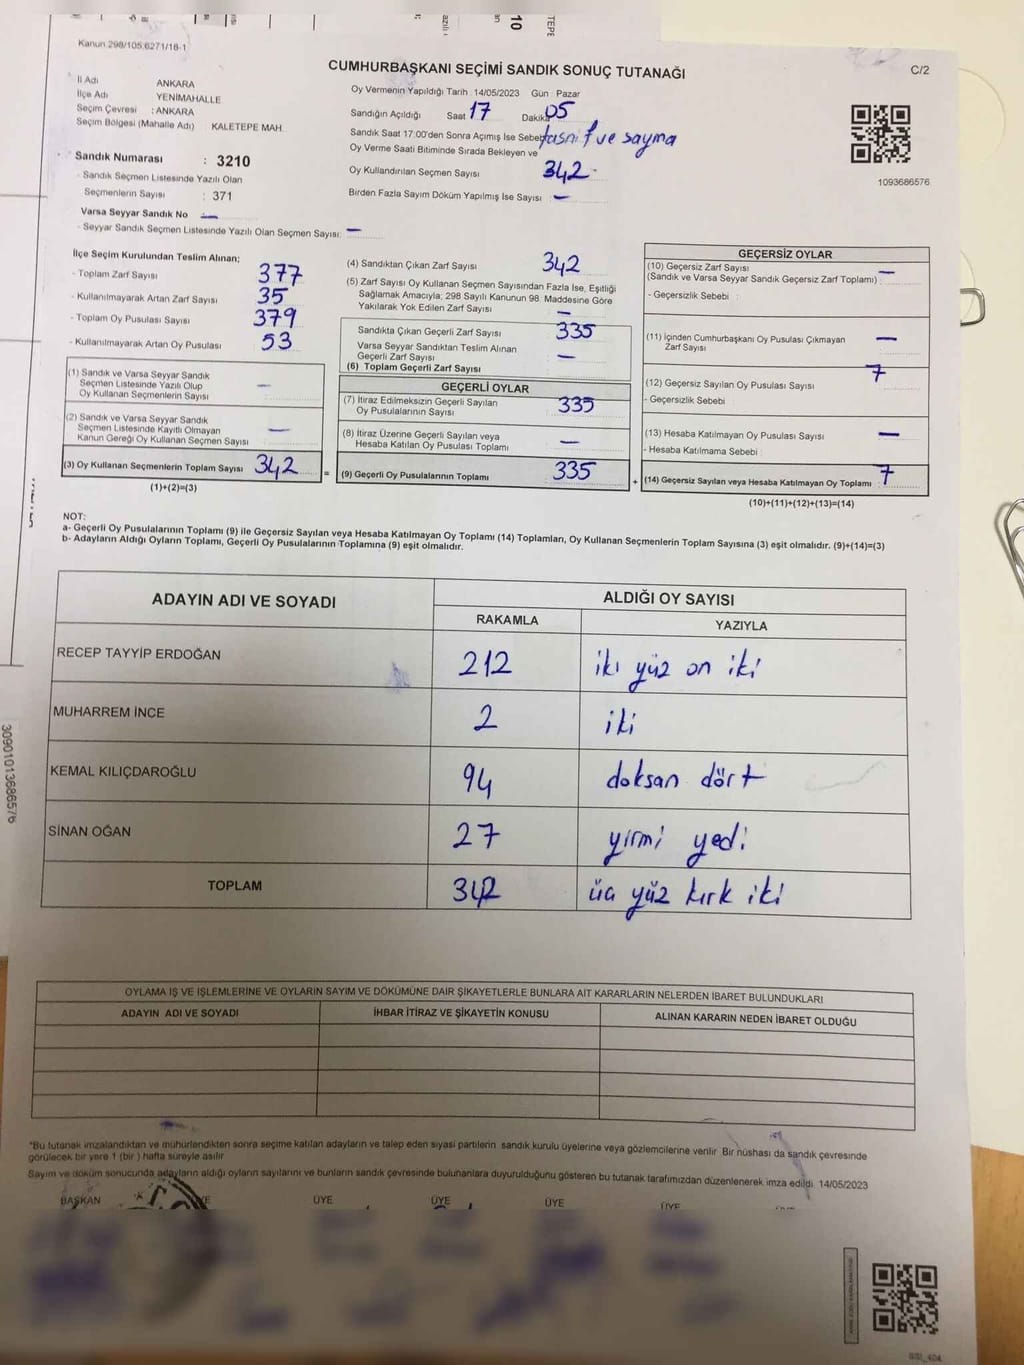 Kanun 298/105,6271/18-1
10
TEPE
CUMHURBAŞKANI SEÇİMİ SANDIK SONUÇ TUTANAĞI
C/2
İl Adı ANKARA
İlçe Adı YENİMAHALLE
Seçim Çevresi : ANKARA
Seçim Bölgesi (Mahalle Adı) KALETEPE MAH.
Sandık Numarası : 3210
- Sandık Seçmen Listesinde Yazılı Olan
Seçmenlerin Sayısı : 371
Varsa Seyyar Sandık No —
- Seyyar Sandık Seçmen Listesinde Yazılı Olan Seçmen Sayısı: —
Oy Vermenin Yapıldığı Tarih : 14/05/2023 Gün : Pazar
Sandığın Açıldığı Saat 17 Dakika 05
Sandık Saat 17:00'den Sonra Açımış İse Sebebi tasnif ve sayma
Oy Verme Saati Bitiminde Sırada Bekleyen ve
Oy Kullandırılan Seçmen Sayısı 342
Birden Fazla Sayım Döküm Yapılmış İse Sayısı : —
1093686576
İlçe Seçim Kurulundan Teslim Alınan;
- Toplam Zarf Sayısı 377
- Kullanılmayarak Artan Zarf Sayısı 35
- Toplam Oy Pusulası Sayısı 379
- Kullanılmayarak Artan Oy Pusulası 53
(1) Sandık ve Varsa Seyyar Sandık
Seçmen Listesinde Yazılı Olup
Oy Kullanan Seçmenlerin Sayısı —
(2) Sandık ve Varsa Seyyar Sandık
Seçmen Listesinde Kayıtlı Olmayan
Kanun Gereği Oy Kullanan Seçmen Sayısı —
(3) Oy Kullanan Seçmenlerin Toplam Sayısı 342
(1)+(2)=(3)
(4) Sandıktan Çıkan Zarf Sayısı 342
(5) Zarf Sayısı Oy Kullanan Seçmen Sayısından Fazla İse, Eşitliği
Sağlamak Amacıyla; 298 Sayılı Kanunun 98. Maddesine Göre
Yakılarak Yok Edilen Zarf Sayısı —
Sandıkta Çıkan Geçerli Zarf Sayısı 335
Varsa Seyyar Sandıktan Teslim Alınan
Geçerli Zarf Sayısı —
(6) Toplam Geçerli Zarf Sayısı
GEÇERLİ OYLAR
(7) İtiraz Edilmeksizin Geçerli Sayılan
Oy Pusulalarının Sayısı 335
(8) İtiraz Üzerine Geçerli Sayılan veya
Hesaba Katılan Oy Pusulası Toplamı —
= (9) Geçerli Oy Pusulalarının Toplamı 335 +
GEÇERSİZ OYLAR
(10) Geçersiz Zarf Sayısı —
(Sandık ve Varsa Seyyar Sandık Geçersiz Zarf Toplamı) :
- Geçersizlik Sebebi :
(11) İçinden Cumhurbaşkanı Oy Pusulası Çıkmayan
Zarf Sayısı —
(12) Geçersiz Sayılan Oy Pusulası Sayısı 7
- Geçersizlik Sebebi :
(13) Hesaba Katılmayan Oy Pusulası Sayısı —
- Hesaba Katılmama Sebebi :
(14) Geçersiz Sayılan veya Hesaba Katılmayan Oy Toplamı : 7
(10)+(11)+(12)+(13)=(14)
NOT:
a- Geçerli Oy Pusulalarının Toplamı (9) ile Geçersiz Sayılan veya Hesaba Katılmayan Oy Toplamı (14) Toplamları, Oy Kullanan Seçmenlerin Toplam Sayısına (3) eşit olmalıdır. (9)+(14)=(3)
b- Adayların Aldığı Oyların Toplamı, Geçerli Oy Pusulalarının Toplamına (9) eşit olmalıdır.
ADAYIN ADI VE SOYADI
ALDIĞI OY SAYISI
RAKAMLA YAZIYLA
RECEP TAYYİP ERDOĞAN 212 iki yüz on iki
MUHARREM İNCE 2 iki
KEMAL KILIÇDAROĞLU 94 doksan dört
SİNAN OĞAN 27 yirmi yedi
TOPLAM 342 üç yüz kırk iki
30901013686576
OYLAMA İŞ VE İŞLEMLERİNE VE OYLARIN SAYIM VE DÖKÜMÜNE DAİR ŞİKAYETLERLE BUNLARA AİT KARARLARIN NELERDEN İBARET BULUNDUKLARI
ADAYIN ADI VE SOYADI İHBAR İTİRAZ VE ŞİKAYETİN KONUSU ALINAN KARARIN NEDEN İBARET OLDUĞU
*Bu tutanak imzalandıktan ve mühürlendikten sonra seçime katılan adayların ve talep eden siyasi partilerin sandık kurulu üyelerine veya gözlemcilerine verilir. Bir nüshası da sandık çevresinde
görülecek bir yere 1 (bir ) hafta süreyle asılır
Sayım ve döküm sonucunda adayların aldığı oyların sayılarını ve bunların sandık çevresinde bulunanlara duyurulduğunu gösteren bu tutanak tarafımızdan düzenlenerek imza edildi. 14/05/2023
BAŞKAN ÜYE ÜYE ÜYE ÜYE